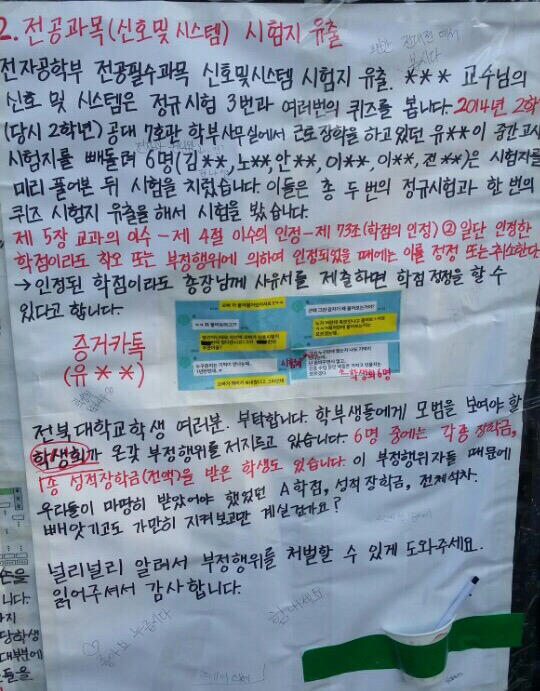 2. 전공과목(신호및시스템) 시험지 유출
전자공학부 전공필수과목 신호및시스템 시험지 유출. *** 교수님의
신호 및 시스템은 정규시험 3번과 여러번의 퀴즈를 봅니다. 2014년 2학
(당시 2학년) 공대 7호관 학부사무실에서 근로장학을 하고있던 유**이 중간고사
시험지를 빼돌려 6명(김**, 노**, 안**, 이**, 이**, 전**)은 시험지를
미리 풀어본 뒤 시험을 치렀습니다. 이들은 총 두번의 정규시험과 한 번의
퀴즈 시험지 유출을 해서 시험을 봤습니다.
제 5장 교과의 이수 - 제 4절 이수의 인정 - 제 73조(학점의 인정) ② 일단 인정한
학점이라도 착오 또는 부정행위에 의하여 인정되었을 때에는 이를 정정 또는 취소한다
→ 인정된 학점이라도 총장님께 사유서를 제출하면 학점 정정을 할 수
있다고 합니다.
증거카톡
(유**)
시험지
학생회 6명
전북대학교학생 여러분. 부탁합니다. 학부생들에게 모범을 보여야 할
학생회가 온갖 부정행위를 저지르고 있습니다. 6명 중에는 각종 장학금,
1종 성적장학금(전액)을 받은 학생도 있습니다. 이 부정행위자들 때문에
우리들이 마땅히 받았어야 했었던 A학점, 성적장학금, 전체석차.
빼앗기고도 가만히 지켜보고만 계실건가요?
널리널리 알려서 부정행위를 처벌할 수 있게 도와주세요.
읽어주셔서 감사합니다.
힘내세요